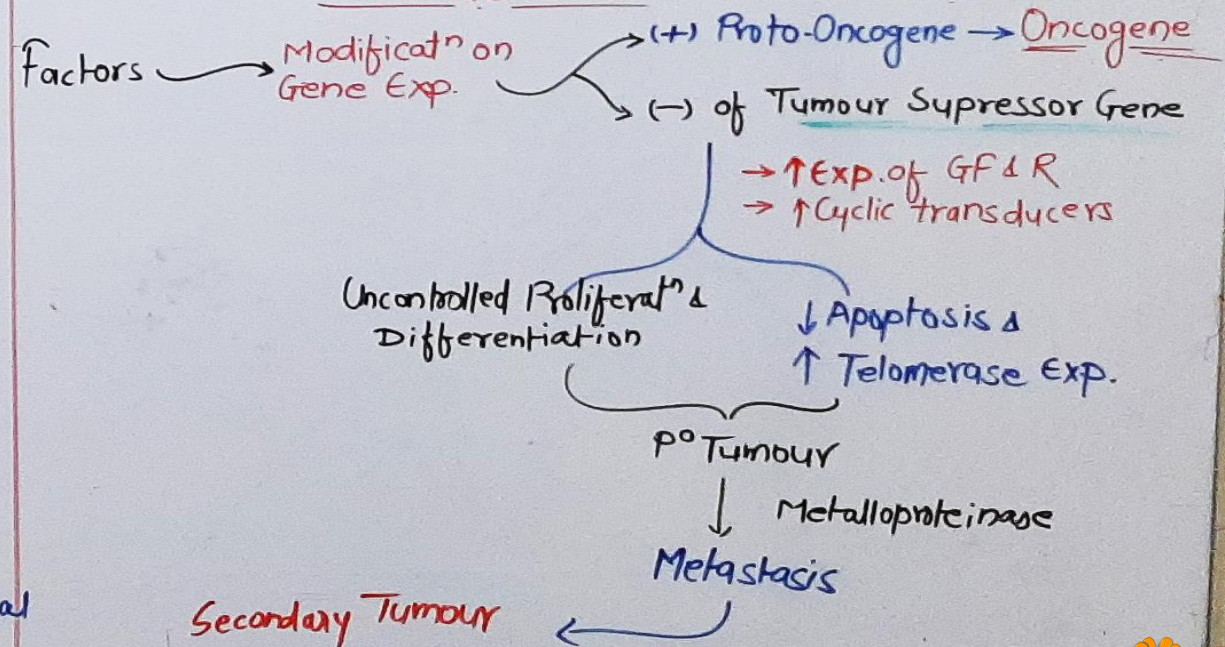 Factors → Modificatⁿ on
Gene Exp.
(+) Proto-Oncogene → Oncogene
(-) of Tumour Supressor Gene
→ ↑ Exp. of GF & R
→ ↑ Cyclic transducers
Uncontrolled Proliferatⁿ &
Differentiation
↓ Apoptosis &
↑ Telomerase Exp.
P° Tumour
↓ Metalloproteinase
Metastasis
al
Secondary Tumour ←